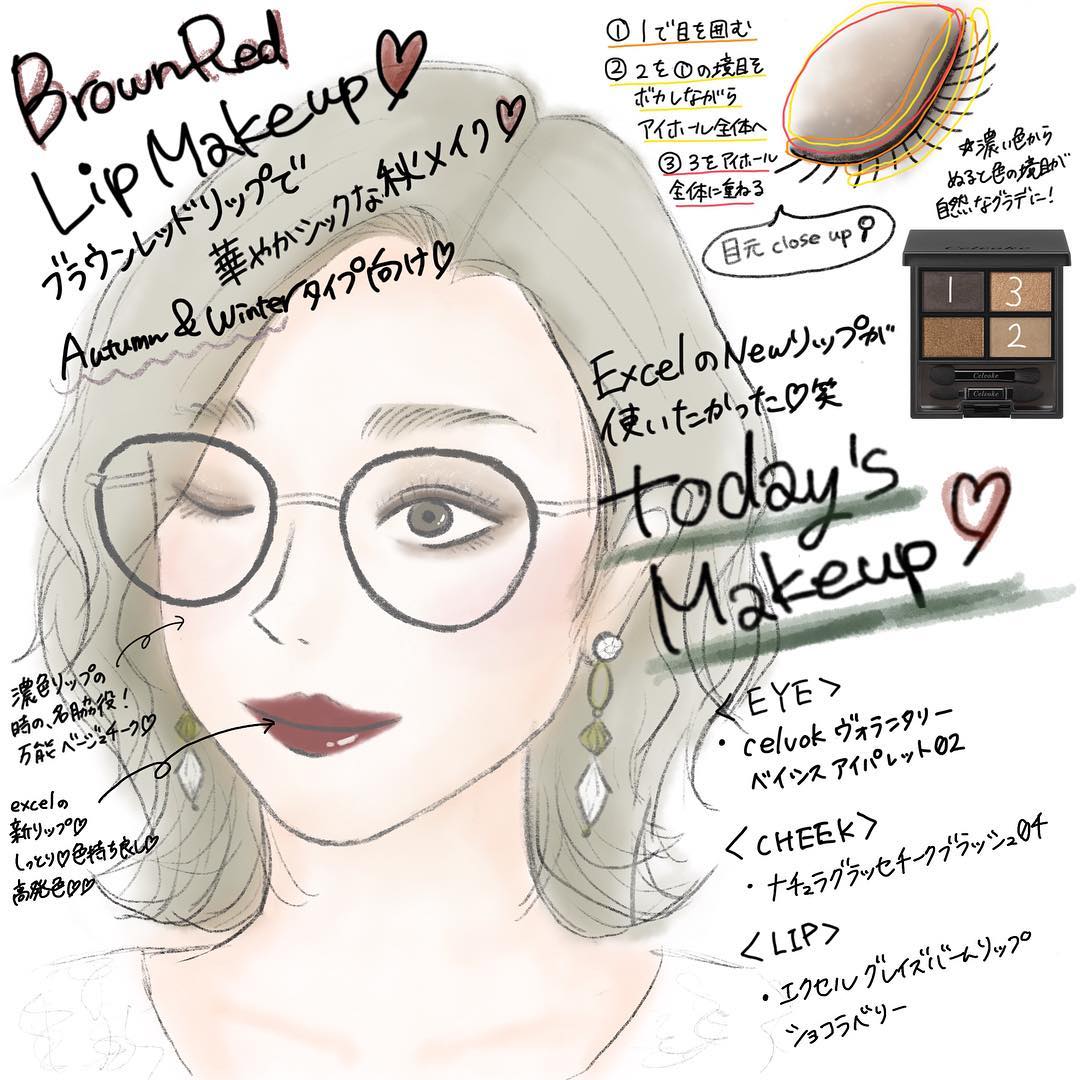 BrownRed
Lip Makeup♡
ブラウンレッドリップで
華やかシックな秋メイク♡
Autumn & Winterタイプ向け♡
① 1で目を囲む
② 2を①の境目を
ボカしながら
アイホール全体へ
③ 3をアイホール
全体に重ねる
☆濃い色から
ぬると色の境目が
自然なグラデに!
目元 close up
Celvoke
1
3
2
Celvoke
Celvoke
Excelの Newリップが
使いたかった♡笑
today's
Makeup♡
濃色リップの
時の、名脇役!
万能ベージュチーク♡
excelの
新リップ♡
しっとり♡色持ち良し♡
高発色♡♡
<EYE>
・celvok ヴォランタリー
ベイシス アイパレット02
<CHEEK>
・ナチュラグラッセチークブラッシュ04
<LIP>
・エクセル グレイズバームリップ
ショコラベリー